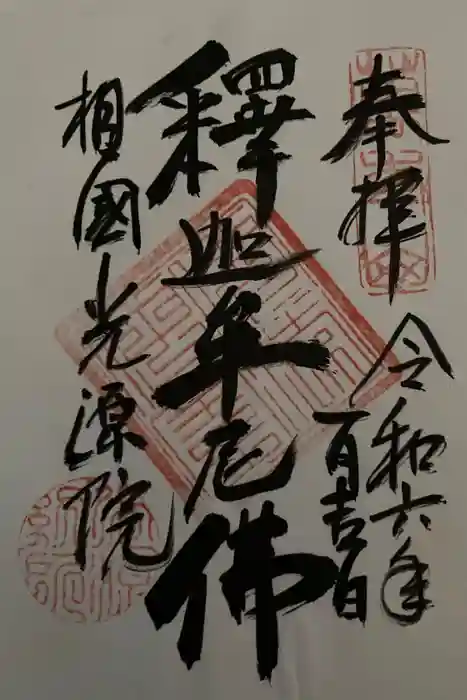 奉拝
令和六年
一月吉日
釋迦牟尼佛
相國光源院